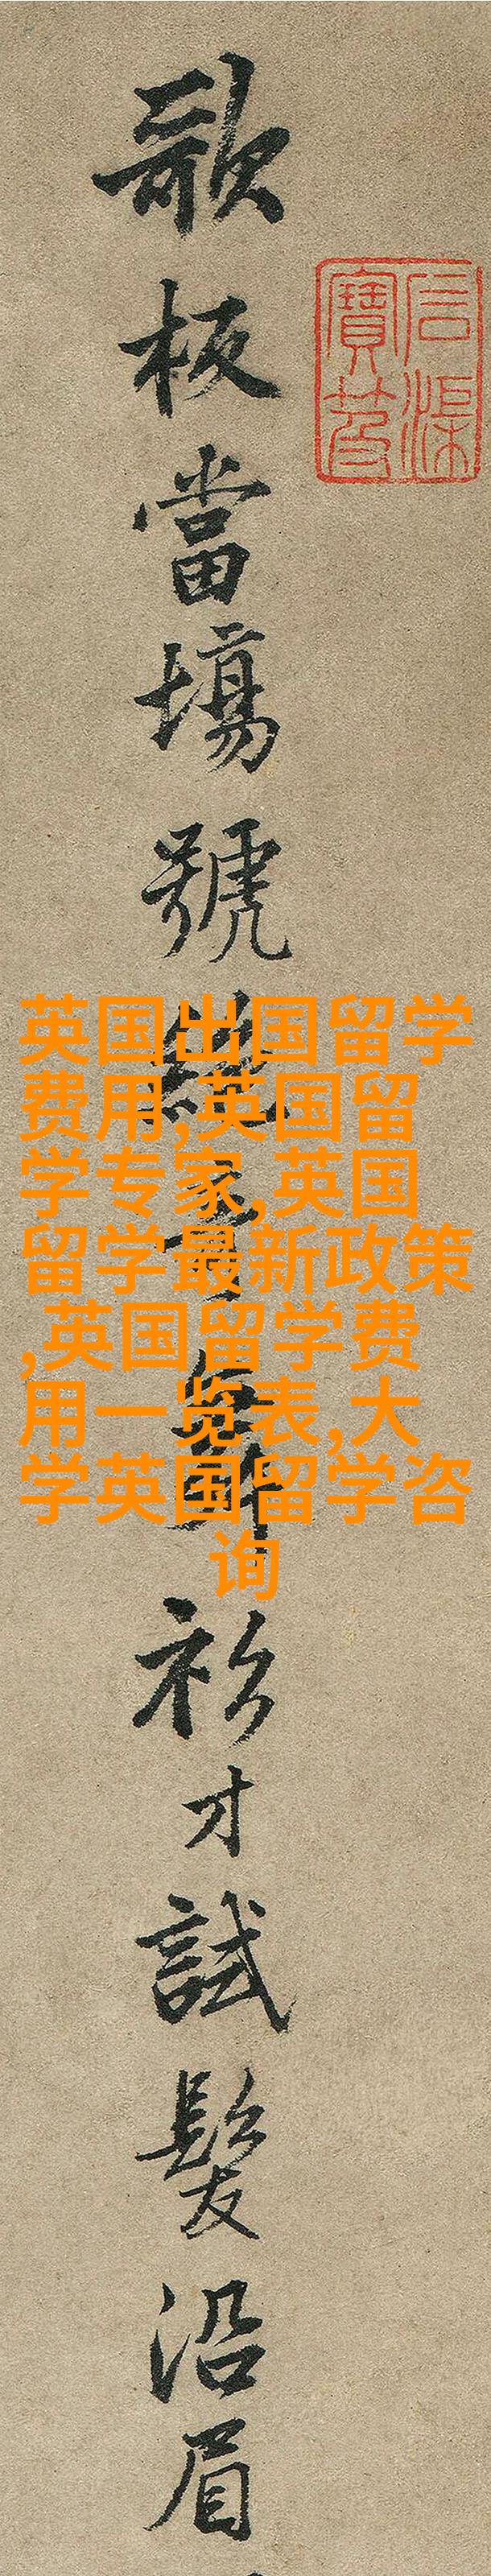 歌板當場號絕奇舞衫才試髮沿眉
石渠寶笈
英国出国留学
费用,英国留
学专家,英国
留学最新政策
,英国留学费
用一览表,大
学英国留学咨
询